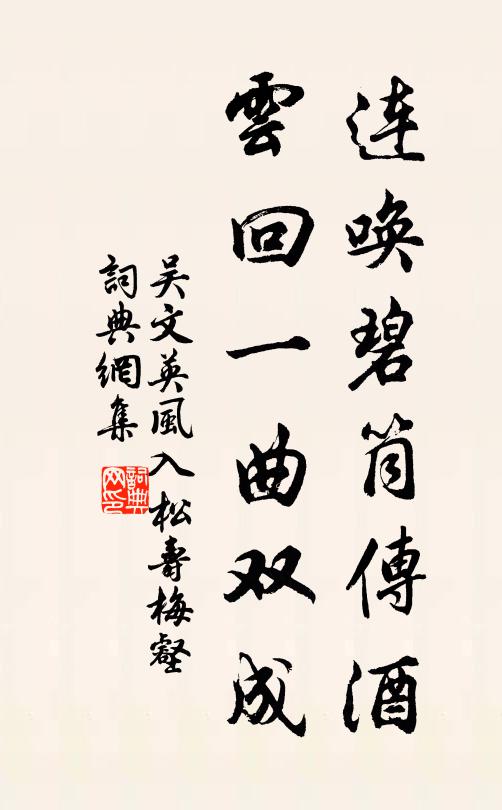 连唤碧筒傳酒
雲回一曲双成
吴文英風入松壽梅壑
詞典網集
詞典
网印